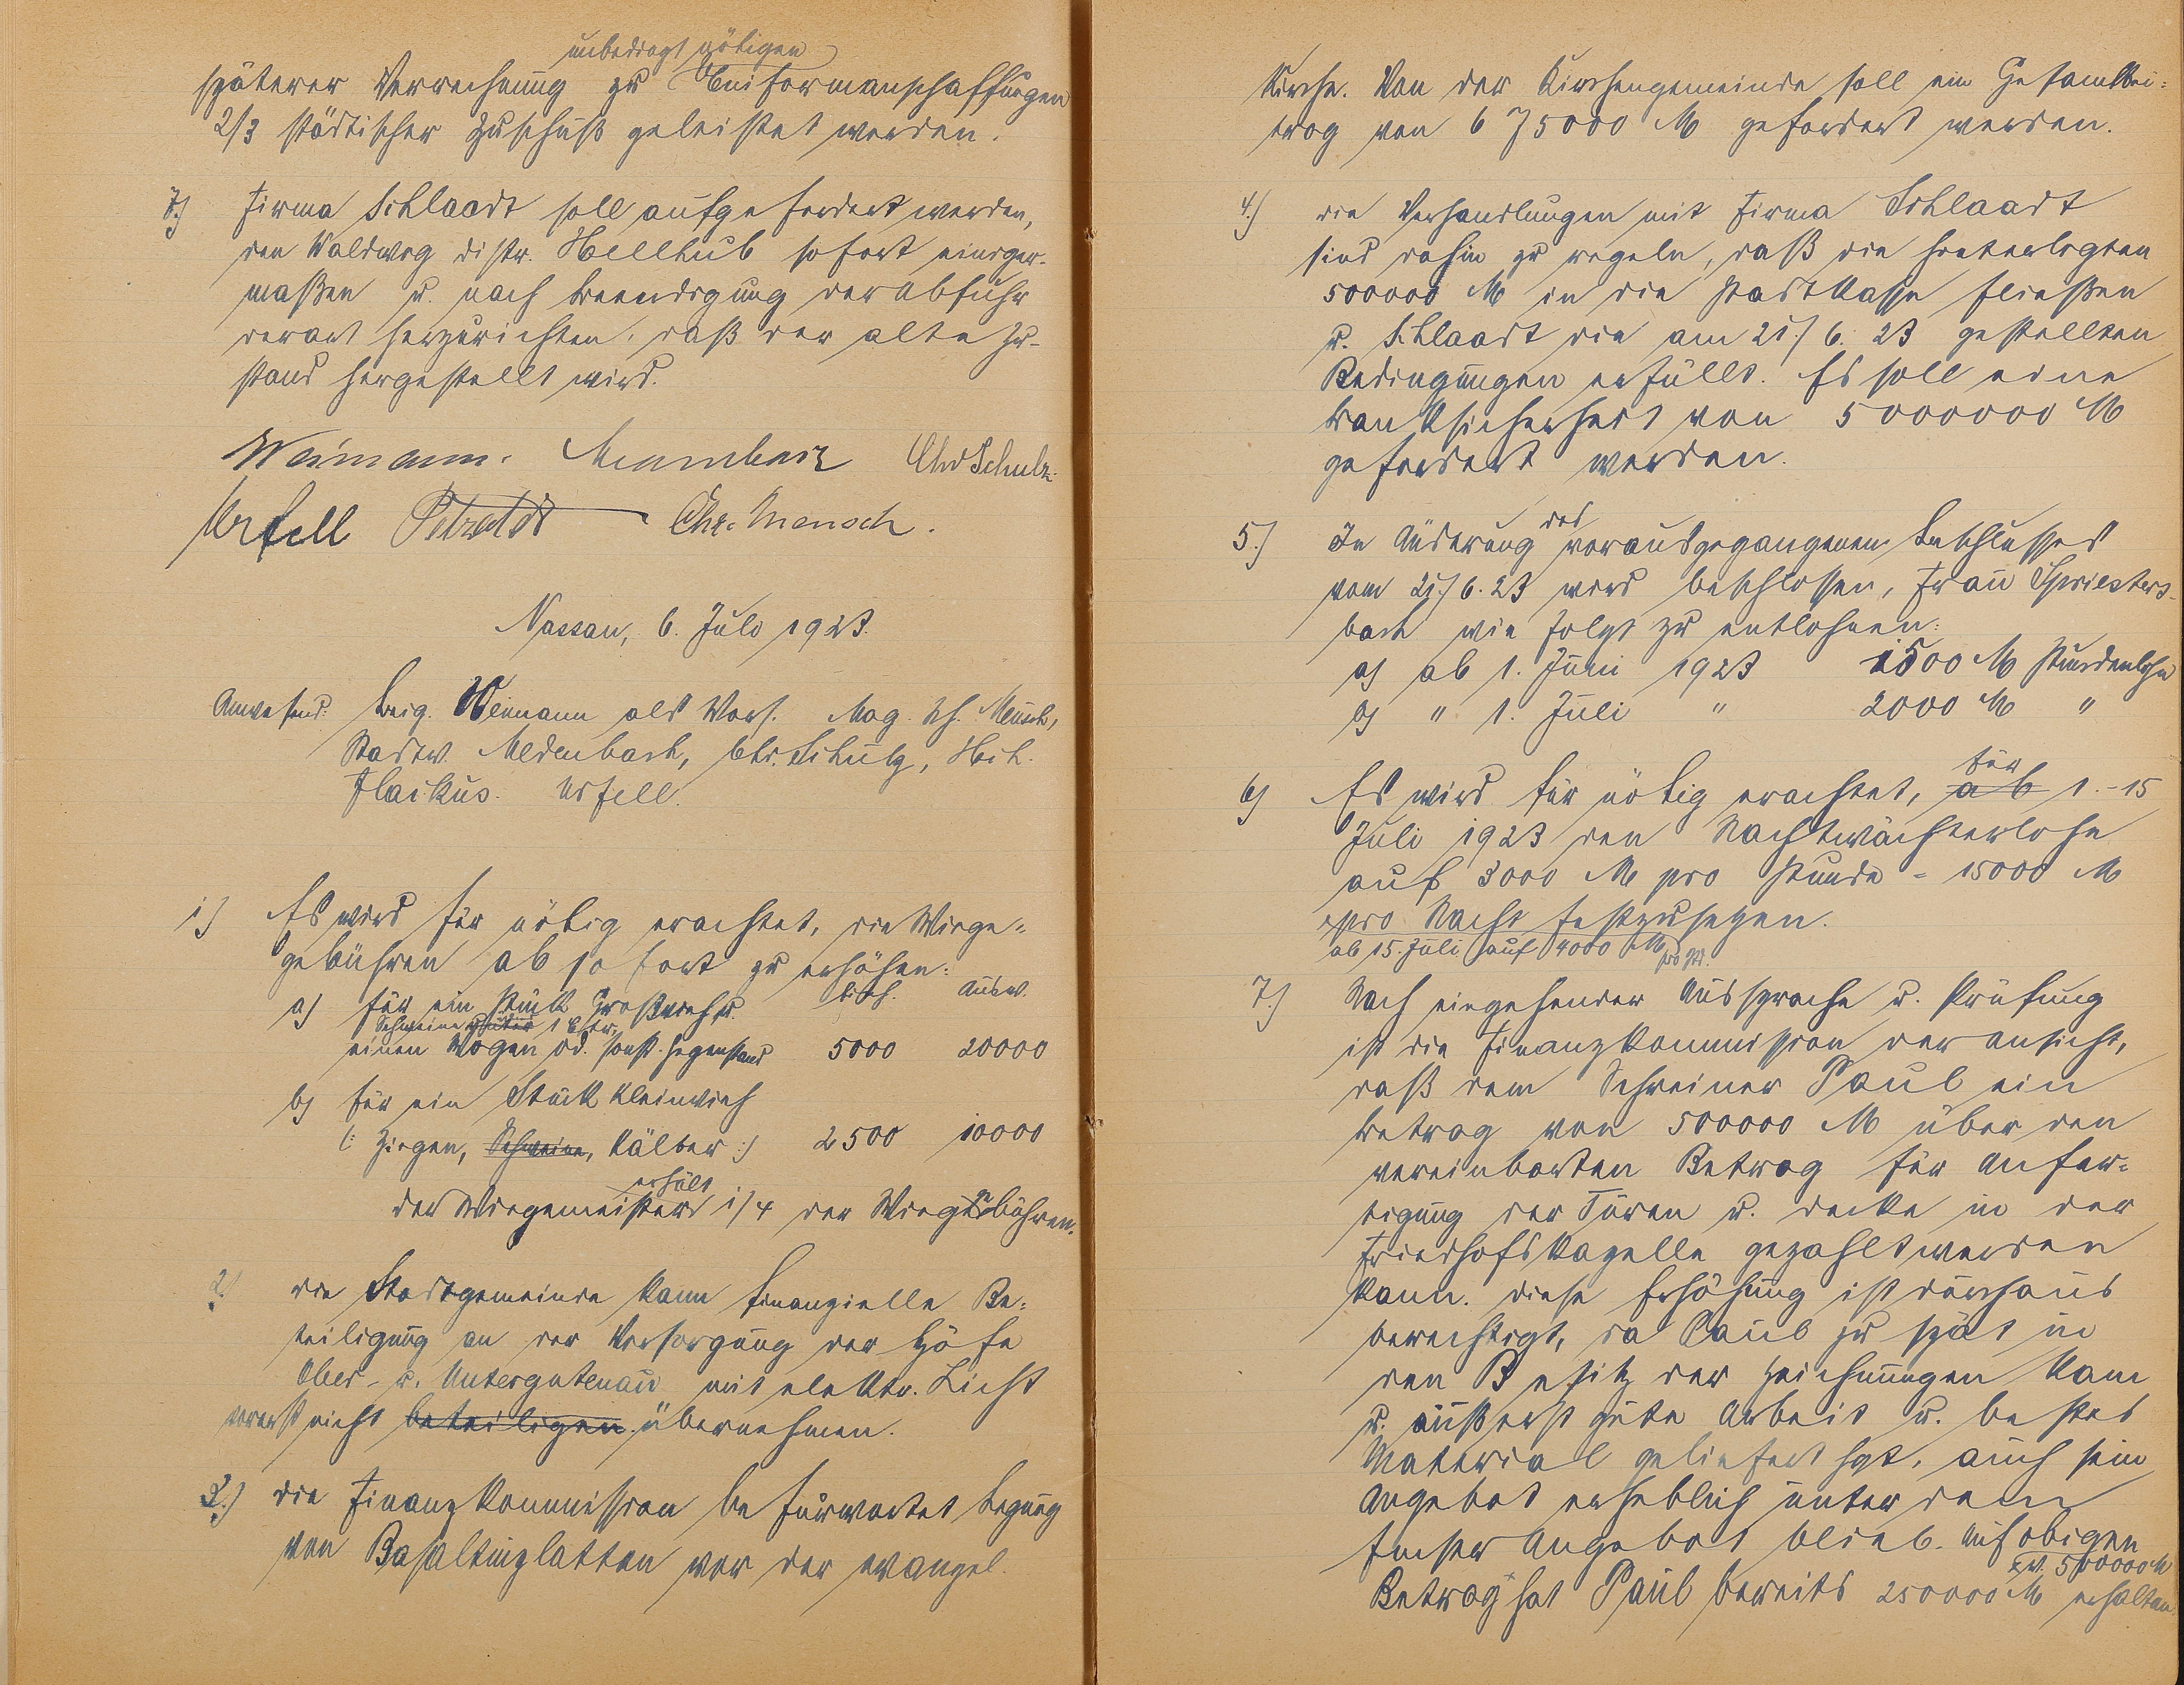 unbedingt nötigen
späterer Verrechnung zu Uniformanschaffungen
2/3 städtischer Zuschuß geleistet werden.
7.) Firma Schlaadt soll aufgefordert werden,
den Waldweg Distr. Hellhub sofort einiger-
maßen u. nach Beendigung der Abfuhr
derart herzurichten, daß der alte Zu-
stand hergestellt wird.
Weimann. Chr Schulz
Urfell Petzoldt Chr. Mensch.
Nassau, 6. Juli 1923.
Anwesend: Beig. Weimann als Vors. Mag. Sch. Mensch,
Stadtv. Medenbach, Chr. Schulz, Hch.
Flaikus. Urfell.
1) Es wird für nötig erachtet, die Wiege-
gebühren ab sofort zu erhöhen:
a) für ein Stück Großvieh u. hies. Ausw.
Schweine über 1 Ctr.
einen Wagen od. sonst. Gegenstand 5000 20000
b) für ein Stück Kleinvieh
(: Ziegen, Schweine, Kälber :) 2500 10000
erhält
der Wiegemeister 1/4 der Wiegegebühren.
2.) Die Stadtgemeinde kann finanzielle Be-
teiligung an der Versorgung der Höfe
Ober- u. Untergutenau mit elektr. Licht
vorerst nicht beteiligen. übernehmen.
3.) Die Finanzkommission befürwortet Legung
von Basaltinplatten vor der evangel.
Kirche. Von der Kirchengemeinde soll ein Gesamtbei-
trag von 675000 M gefordert werden.
4.) Die Verhandlungen mit Firma Schlaadt
sind dahin zu regeln, daß die hinterlegten
500000 M in die Stadtkasse fließen
u. Schlaadt die am 21./6. 23 gestellten
Bedingungen erfüllt. Es soll eine
Banksicherheit von 5000000 M
gefordert werden.
5.) In Änderung des vorausgegangenen Beschlusses
vom 21./6.23 wird beschlossen, Frau Spriesters-
bach wie folgt zu entlohnen:
a) ab 1. Juni 1923 1500 M Stundenlohn
b) " 1. Juli " 2000 M "
für
6) Es wird für nötig erachtet, ab 1.-15
Juli 1923 den Nachtwächterlohn
auf 3000 M pro Stunde = 15000 M
pro Nacht festzusetzen.
ab 15. Juli auf 4000 M pro Std.
7.) Nach eingehender Aussprache u. Prüfung
ist die Finanzkommission der Ansicht,
daß dem Schreiner Paul ein
Betrag von 500000 M über den
vereinbarten Betrag für Anfer-
tigung der Türen u. Decke in der
Friedhofskapelle gezahlt werden
kann. Diese Erhöhung ist durchaus
berechtigt, da Paul zu spät in
den Besitz der Zeichnungen kam
u. äußerst gute Arbeit u. bestes
Material geliefert hat, auch sein
Angebot erheblich unter dem
Emser Angebot blieb. Auf obigen
500000 M
Betrag hat Paul bereits 250000 M erhalten